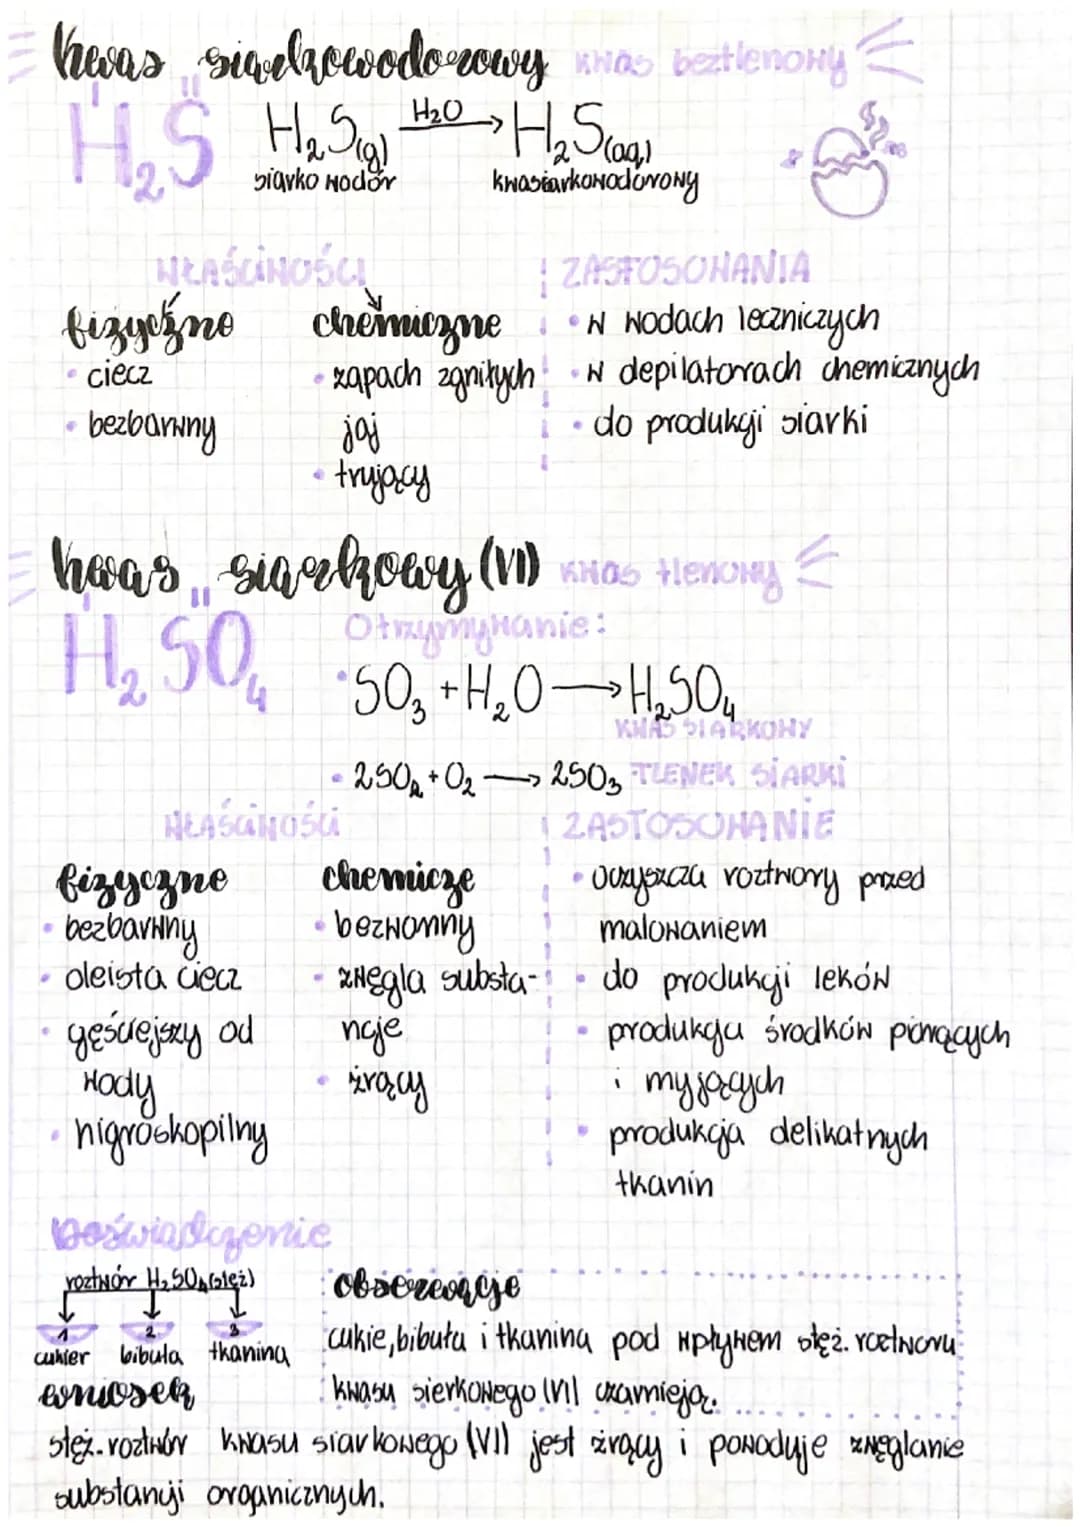 kwas siarkowodorowy kwas beztlenowy
H₂S H₂S(g) H₂O → H₂S(aq)
siarko wodór kwasiarkowodorowy
WŁAŚCIWOŚCI
fizyczne
• ciecz
• bezbarwny
chemiczne
• zapach zgniłych
jaj
• trujący
ZASTOSOWANIA
• w wodach leczniczych
• w depilatorrach chemicznych
• do produkcji siarki
kwas siarkowy (VI) kwas tlenowy
H₂SO₄
Otrzymywanie:
• SO₃ + H₂O → H₂SO₄
KWAS SIARKOWY
• 2SO₂ + O₂ → 2SO₃ TLENEK SIARKI
WŁAŚCIWOŚCI
fizyczne
• bezbarwny
• oleista ciecz
• gęściejszy od
wody
• higroskopilny
chemicze
• bezwonny
• zwęgla substa-
ncje
• żrący
ZASTOSOWANIE
• oczyszcza roztwory przed
malowaniem
• do produkcji leków
• produkcja środków piorących
i myjących
• produkcja delikatnych
tkanin
Doświadczenie
roztwór H₂SO₄(stęż)
1 2 3
cukier bibuła tkanina
obserwacje
cukie, bibuła i tkanina pod wpływem stęż. roztworu
kwasu sierkowego (VI) czarnieją.
wniosek
stęż. roztwór kwasu siarkowego (VI) jest żrący i powoduje zwęglanie
substancji organicznych.